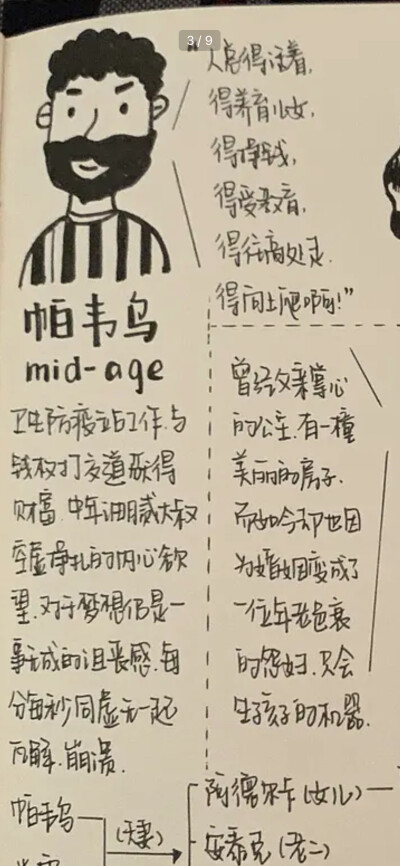 3/9
"人总得活着,
得养育儿女,
得挣钱,
得受教育,
得往高处走.
得向上爬啊!"
帕韦乌
mid-age
卫生防疫站工作.与
钱权打交道获得
财富.中年油腻大叔
空虚挣扎的内心欲
望.对于梦想仍是一
事无成的沮丧感.每
分每秒同虚无一起
瓦解.崩溃.
曾经父亲掌心
的公主.有一撞
美丽的房子.
而如今却也因
为婚姻变成了
一位年老色衰
的怨妇.只会
生孩子的机器.
帕韦乌
(夫妻)
阿德尔卡(女儿)
安泰克(老二)